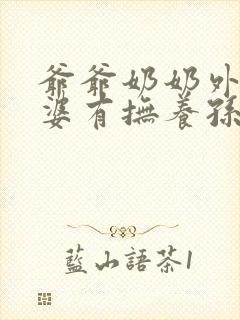 爺爺奶奶外
婆有撫養孫
藍山語茶1